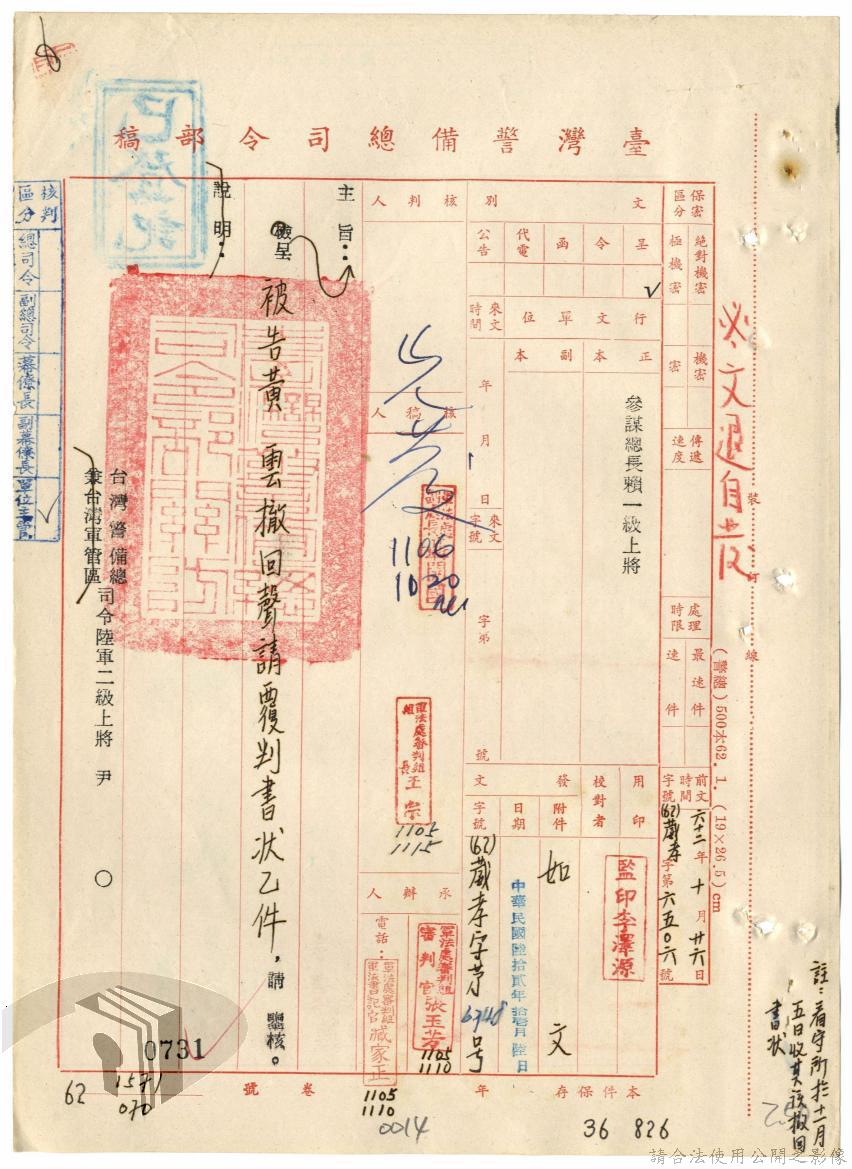 臺灣警備總司令部稿
保密區分
絕對機密
極機密
機密
密
傳遞速度
處理時限
最速件
速件
前文時間
六十二年十月廿六日
字號
(62)蕆孝字第六五〇六號
文別
呈
令
函
代電
公告
✓
行文單位
正本
副本
參謀總長賴一級上將
來文時間
年
月
日
來文字號
字第
號
用印
監印李澤源
校對者
發文
附件
如文
日期
中華民國陸拾貳年拾壹月陸日
字號
(62)蕆孝字第6748号
核判人
核稿人
1106
1020
軍法處審判組組長王宗
1105
1115
承辦人
軍法處審判組審判官張玉芳
1105
1110
電話：
軍法處審判組軍法書記官臧家正
1105
1110
主旨：
檢呈被告黃雲撤回聲請覆判書狀乙件，請鑒核。
說明：
台灣警備總司令陸軍二級上將尹〇
兼台灣軍管區
核判區分
總司令
副總司令
幕僚長
副幕僚長
單位主官
✓
已登記
裝訂線
(警總)500本62.1.(19×26.5)cm
註：看守所於十一月五日收其該撤回書狀
0731
62
1571
070
卷
號
年
本件保存
0014
36 826
請合法使用公開之影像